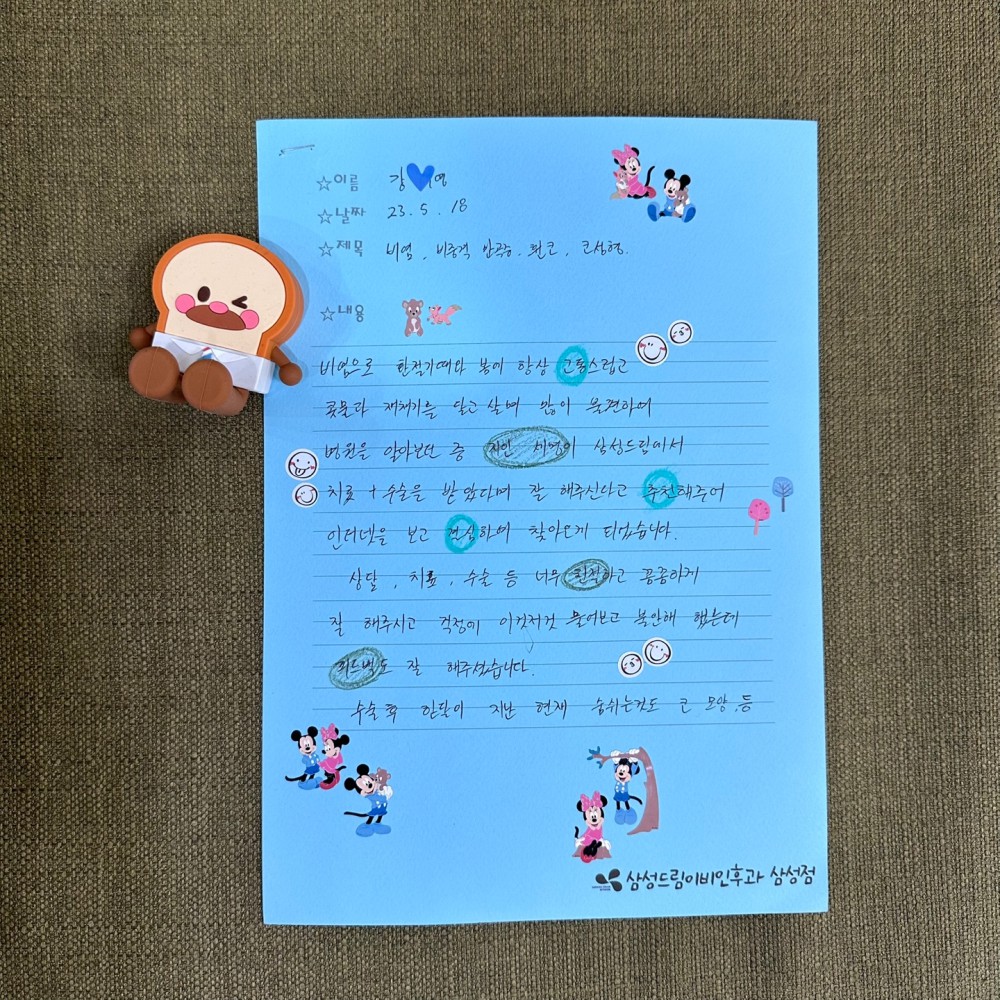 ☆이름 강♥영
☆날짜 23. 5. 18
☆제목 비염, 비중격 만곡증, 휜코, 코성형.
☆내용
비염으로 환절기때와 봄이 항상 고통스럽고
콧물과 재채기를 달고 살며 많이 불편하여
병원을 알아보던 중 지인 세명이 삼성드림에서
치료 + 수술을 받았다며 잘 해주신다고 추천해주어
인터넷을 보고 안심하며 찾아오게 되었습니다.
상담, 치료, 수술 등 너무 친절하고 꼼꼼하게
잘 해주시고 걱정이 이것저것 물어보고 불안해 했는데
피드백도 잘 해주셨습니다.
수술 후 한달이 지난 현재 숨쉬는것도 코 모양, 등
삼성드림이비인후과 삼성점